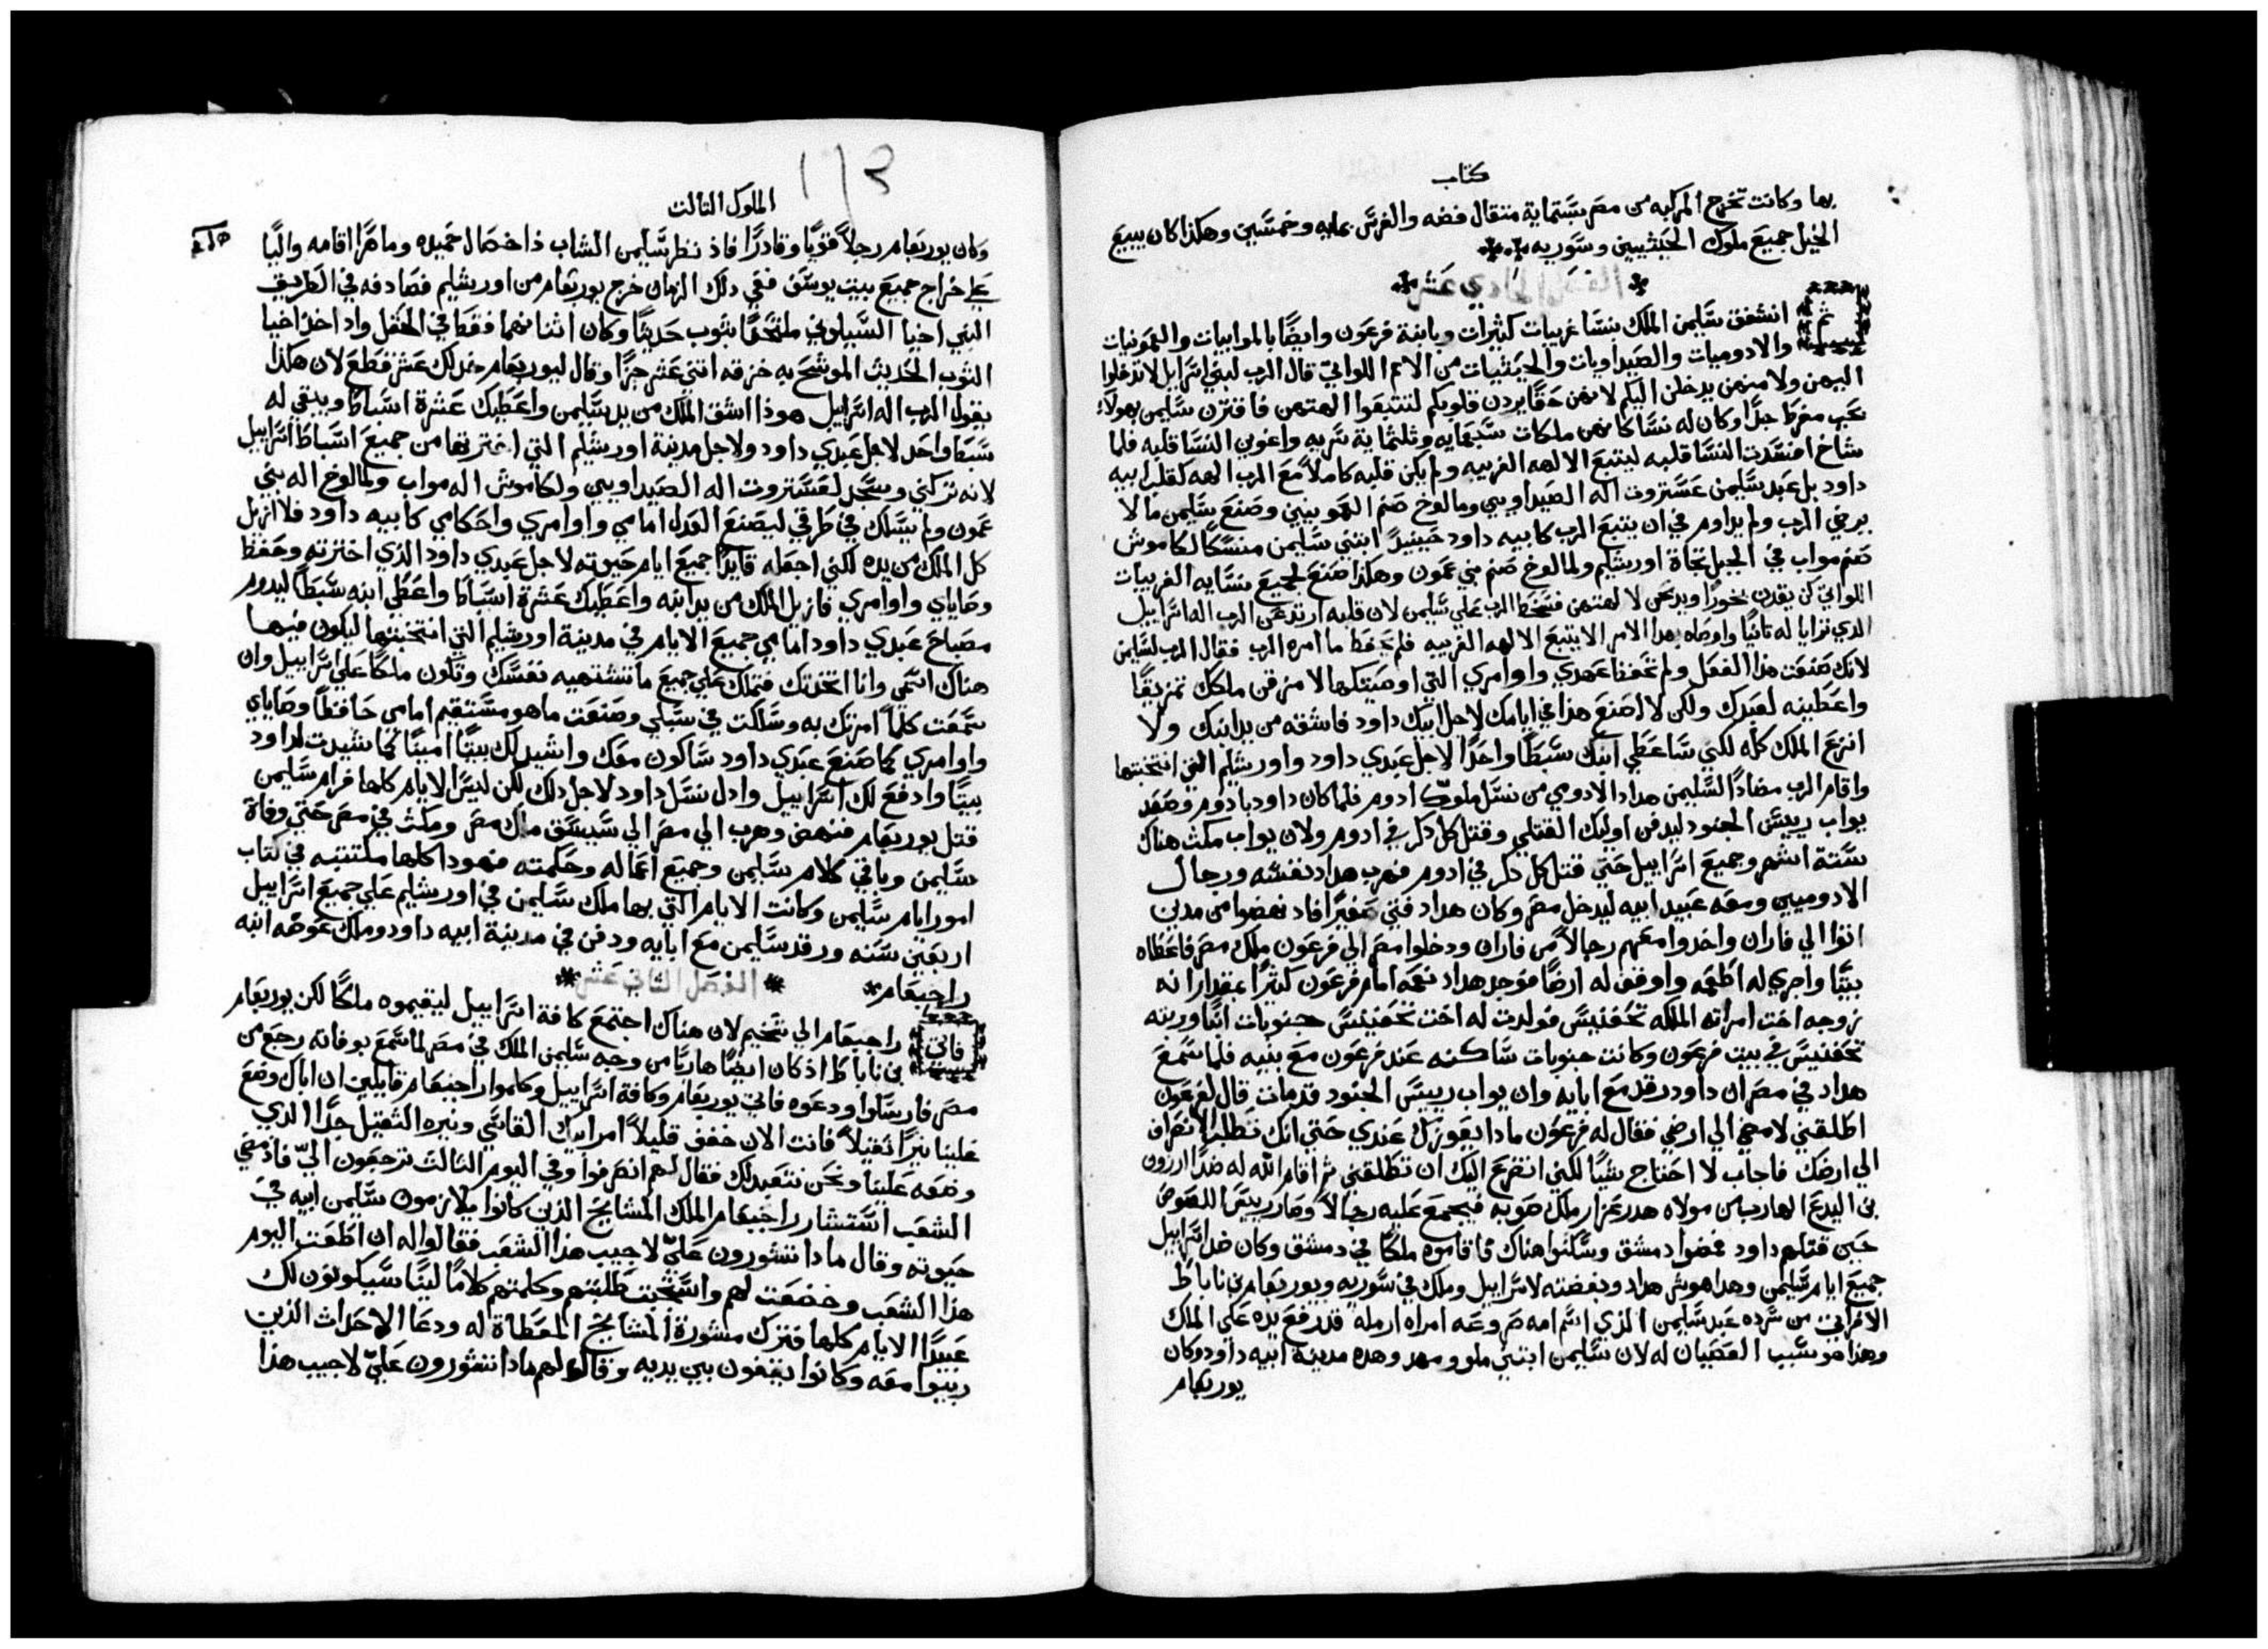 كتاب
بها وكانت تخرج المركبه من مصر بستماية متقال فضه والفرس بمايه وخمسين وهكذا كان يبيع
الخيل جميع ملوك الحيثيين وسوريه
الفصل الحادي عشر
ثم انشغف سليمن الملك بنسا غريبات كثيرات وبابنة فرعون وايضًا بالموابيات والعمونيات
والادوميات والصيداويات والحيثيات من الامم اللواتي قال الرب لبني اسراييل لا تدخلوا
اليهن ولا منهن يدخلن اليكم لانهن حقًا يردن قلوبكم لتتبعوا الهتهن فاقترن سليمن بهولاء
بحب مفرط جدًا وكان له نسا كانهن ملكات سبعمايه وثلثماية سريه واغوين النسا قلبه فلما
شاخ افسدت النسا قلبه ليتبع الالهه الغريبه ولم يكن قلبه كاملاً مع الرب الهه كقلب ابيه
داود بل عبد سليمن عستروت اله الصيداويين ومالوخ صنم العمونيين وصنع سليمن ما لا
يرضي الرب ولم يداوم في ان يتبع الرب كابيه داود حينيدٍ ابتني سليمن منسكًا لكاموش
صنم مواب في الجبل تجاة اورشليم ولمالوخ صنم بني عمون وهكذا صنع لجميع نسايه الغريبات
اللواتي كن يقدن بخورًا ويدبحن لالهتهن فسخط الرب علي سليمن لان قلبه ارتد عن الرب اله اسراييل
الدي ترايا له تانيًا واوصاه بهدا الامر الا يتبع الالهه الغريبه فلم يحفظ ما امره الرب فقال الرب لسليمن
لانك صنعت هذا الفعل ولم تحفظ عهدي واوامري التي اوصيتك بها لامزقن ملكك تمزيقًا
واعطينه لعبدك ولكن لا اصنع هذا في ايامك لاجل ابيك داود فاشقه من يد ابنك ولا
انزع الملك كله لكني ساعطي ابنك سبطًا واحدًا لاجل عبدي داود واورشليم التي انتخبتها
واقام الرب مضادًا لسليمن هداد الادومي من نسل ملوك ادوم فلما كان داود بادوم وصعد
يواب رييس الجنود ليدفن اوليك القتلي وقتل كل دكر في ادوم ولان يواب مكث هناك
ستة اشهر وجميع اسراييل حتي قتل كل دكر في ادوم فهرب هداد نفسه ورجال
الادوميين ومعه عبيد ابيه ليدخل مصر وكان هداد فتي صغيرًا فاد نهضوا من مدين
اتوا الي فاران واخدوا معهم رجالاً من فاران ودخلوا مصر الي فرعون ملك مصر فاعطاه
بيتًا واجري له اطعمه واوقف له ارضًا فوجد هداد نعمه امام فرعون كثيرًا بمقدار انه
زوجه اخت امراته الملكه تحفنيس فولدت له اخت تحفنيس جنوبات ابنًا وربته
تحفنيس في بيت فرعون وكانت جنوبات ساكنه عند فرعون مع بنيه فلما سمع
هداد في مصر ان داود رقد مع ابايه وان يواب رييس الجنود قد مات قال لفرعون
اطلقني لامضي الي ارضي فقال له فرعون مادا يعوزك عندي حتي انك تطلب الانصراف
الي ارضك فاجاب لا احتاج شيًا لكني اتضرع اليك ان تطلقني ثم اقام الله له ضدًا ارزون
بن اليدع الهارب من مولاه هدرعزار ملك صوبه فيجمع عليه رجالاً وصار رييس اللصوص
حين قتلهم داود فمضوا دمشق وسكنوا هناك فاقاموه ملكًا في دمشق وكان ضد اسراييل
جميع ايام سليمن وهدا هو شر هداد وبغضته لاسراييل وملك في سوريه ويوربعام بن ناباط
الافراتي من سرده عبد سليمن الذي اسم امه صروعه امراه ارمله قد رفع يده علي الملك
وهذا هو سبب العصيان له لان سليمن ابتني ملو ومهد وهده مدينة ابيه داود وكان
يوربعام
الملوك التالت
وكان يوربعام رجلاً قويًا وقادرًا فاذ نظر سليمن الشاب ذا خصال حميده وماهرًا اقامه واليًا
علي خراج جميع بيت يوسف ففي دلك الزمان خرج يوربعام من اورشليم فصادفه في الطريق
النبي اخيا السيلوني ملتحفًا بثوب حديثًا وكان اثناهما فقط في الحقل واد اخد اخيا
الثوب الحديث الموشح به خزقه اثني عشر جزًا وقال ليوربعام خد لك عشر قطع لان هكذا
يقول الرب اله اسراييل هوذا اشق الملك من يد سليمن واعطيك عشرة اسباط ويبقي له
سبط واحد لاجل عبدي داود ولاجل مدينة اورشليم التي اختريتها من جميع اسباط اسراييل
لانه تركني وسجد لعستروت اله الصيداويين ولكاموش اله مواب ولمالوخ اله بني
عمون ولم يسلك في طرقي ليصنع العدل امامي واوامري واحكامي كابيه داود فلا ازيل
كل الملك من يده لكني اجعله قايدًا جميع ايام حيوته لاجل عبدي داود الذي اخترته وحفظ
وصاياي واوامري فازيل الملك من يد ابنه واعطيك عشرة اسباط واعطي ابنه سبطًا ليدوم
مصباح عبدي داود امامي جميع الايام في مدينة اورشليم التي انتخبتها ليكون فيها
هناك اسمي وانا اتخدتك فتملك علي جميع ما تشتهيه نفسك وتكون ملكًا علي اسراييل وان
سمعت كلما امرتك به وسلكت في سبلي وصنعت ما هو مستقيم امامي حافظًا وصاياي
واوامري كما صنع عبدي داود ساكون معك واشيد لك بيتًا امينًا كما شيدت لداود
بيتًا وادفع لك اسراييل وادل نسل داود لاجل دلك لكن ليس الايام كلها فرام سليمن
قتل يوربعام فنهض وهرب الي مصر الي شيشق ملك مصر ومكث في مصر حتي وفاة
سليمن وباقي كلام سليمن وجميع اعماله وحكمته فهودا كلها مكتتبه في كتاب
امور ايام سليمن وكانت الايام التي بها ملك سليمن في اورشليم علي جميع اسراييل
اربعين سنه ورقد سليمن مع ابايه ودفن في مدينة ابيه داود وملك عوضه ابنه
راحبعام
الفصل الثاني عشر
فاتي راحبعام الي شخيم لان هناك اجتمع كافة اسراييل ليقيموه ملكًا لكن يوربعام
بن ناباط اذ كان ايضًا هاربًا من وجه سليمن الملك في مصر لما سمع بوفاته رجع من
مصر فارسلوا ودعوه فاتي يوربعام وكافة اسراييل وكلموا راحبعام قايلين ان اباك وضع
علينا نيرًا ثقيلاً فانت الان خفف قليلاً امر ابيك القاسي ونيره الثقيل جدًا الذي
وضعه علينا ونحن نتعبد لك فقال لهم انصرفوا وفي اليوم الثالث ترجعون اليّ فاذ مضي
الشعب استشار راحبعام الملك المشايخ الذين كانوا يلازمون سليمن ابيه في
حيوته وقال مادا تشورون عليّ لاجيب هذا الشعب فقالوا له ان اطعت اليوم
هذا الشعب وخضعت لهم واستجبت طلبتهم وكلمتهم كلامًا لينًا سيكونون لك
عبيدًا الايام كلها فترك مشورة المشايخ المعطاة له ودعا الاحداث الذين
ربيوا معه وكانوا يقفون بين يديه وقال لهم مادا تشورون عليّ لاجيب هذا